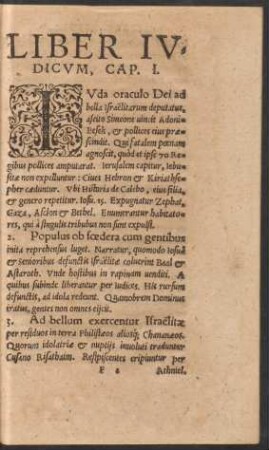 LIBER IV-
DICVM, CAP. I.
IVda oraculo Dei ad
bella israëlitarum deputatus,
ascito Simeone vincit Adoni-
besek, & pollices eius præ-
scindit. Qui fatalem pœnam
agnoscit, quòd et ipse 70 Re-
gibus pollices amputarat. Ierusalem capitur, Iebu-
sitæ non expelluntur: Ciues Hebron & Kiriathse-
pher cæduntur. Vbi Historia de Calebo, eius filia,
& genero repetitur. Iosu. 15. Expugnatur Zephat,
Gaza, Asclon & Bethel. Enumerantur habitato-
res, qui à singulis tribubus non sunt expulsi.
2. Populus ob fœdera cum gentibus
inita reprehensus luget. Narratur, quomodo Iosua
& Senioribus defunctis israëlitæ coluerint Baal &
Astaroth. Vnde hostibus in rapinam uenditi. A
quibus subinde liberantur per iudices. His rursum
defunctis, ad idola redeunt. Quamobrem Dominus
iratus, gentes non omnes eijcit.
3. Ad bellum exercentur Israëlitæ
per residuos in terra Philistæos aliosq; Chananæos.
Quorum idolatriæ & nuptijs inuoluti traduntur
Cusano Risathaim. Respiscentes eripiuntur per
F 2 Athniel.